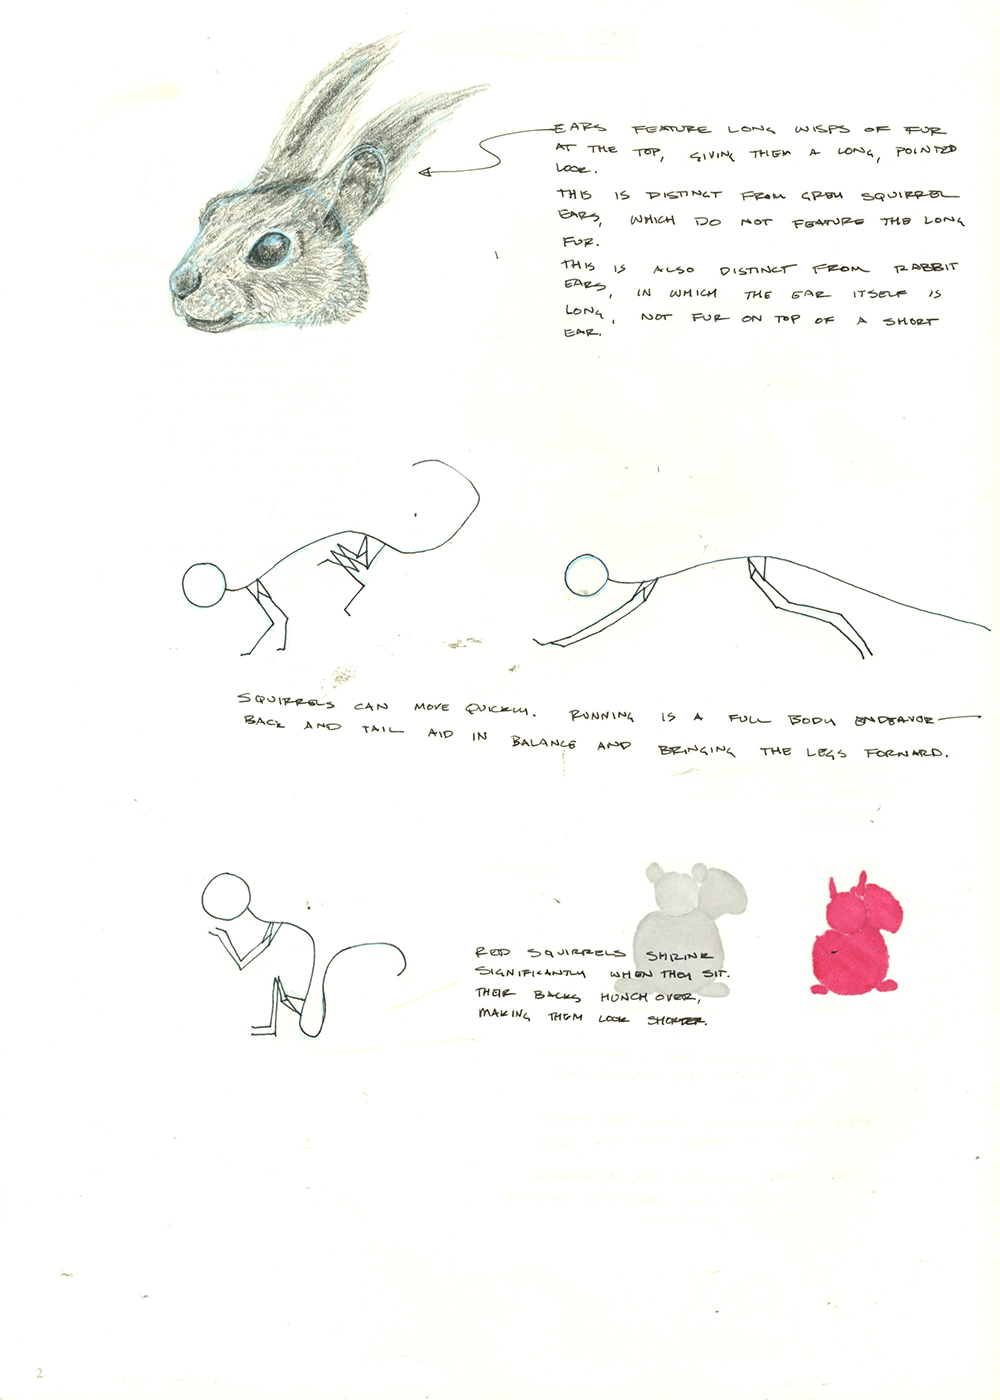 EARS FEATURE LONG WISPS OF FUR
AT THE TOP, GIVING THEM A LONG, POINTED
LOOK.
THIS IS DISTINCT FROM GREY SQUIRREL
EARS, WHICH DO NOT FEATURE THE LONG
FUR.
THIS IS ALSO DISTINCT FROM RABBIT
EARS, IN WHICH THE EAR ITSELF IS
LONG, NOT FUR ON TOP OF A SHORT
EAR.
SQUIRRELS CAN MOVE QUICKLY. RUNNING IS A FULL BODY ENDEAVOR—
BACK AND TAIL AID IN BALANCE AND BRINGING THE LEGS FORWARD.
RED SQUIRRELS SHRINK
SIGNIFICANTLY WHEN THEY SIT.
THEIR BACKS HUNCH OVER,
MAKING THEM LOOK SHORTER.
2